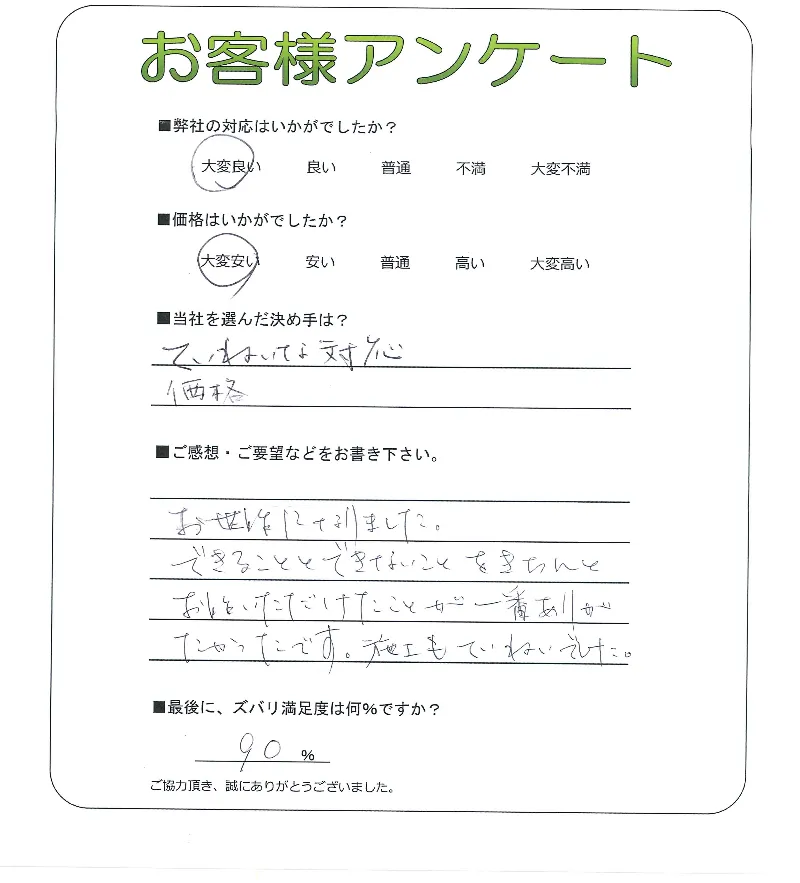 お客様アンケート
■弊社の対応はいかがでしたか？
大変良い 良い 普通 不満 大変不満
■価格はいかがでしたか？
大変安い 安い 普通 高い 大変高い
■当社を選んだ決め手は？
ていねいな対応
価格
■ご感想・ご要望などをお書き下さい。
お世話になりました。
できることとできないことをきちんと
いただけたことが一番ありが
たかったです。施工もていねいでした。
■最後に、ズバリ満足度は何%ですか？
90 %
ご協力頂き、誠にありがとうございました。